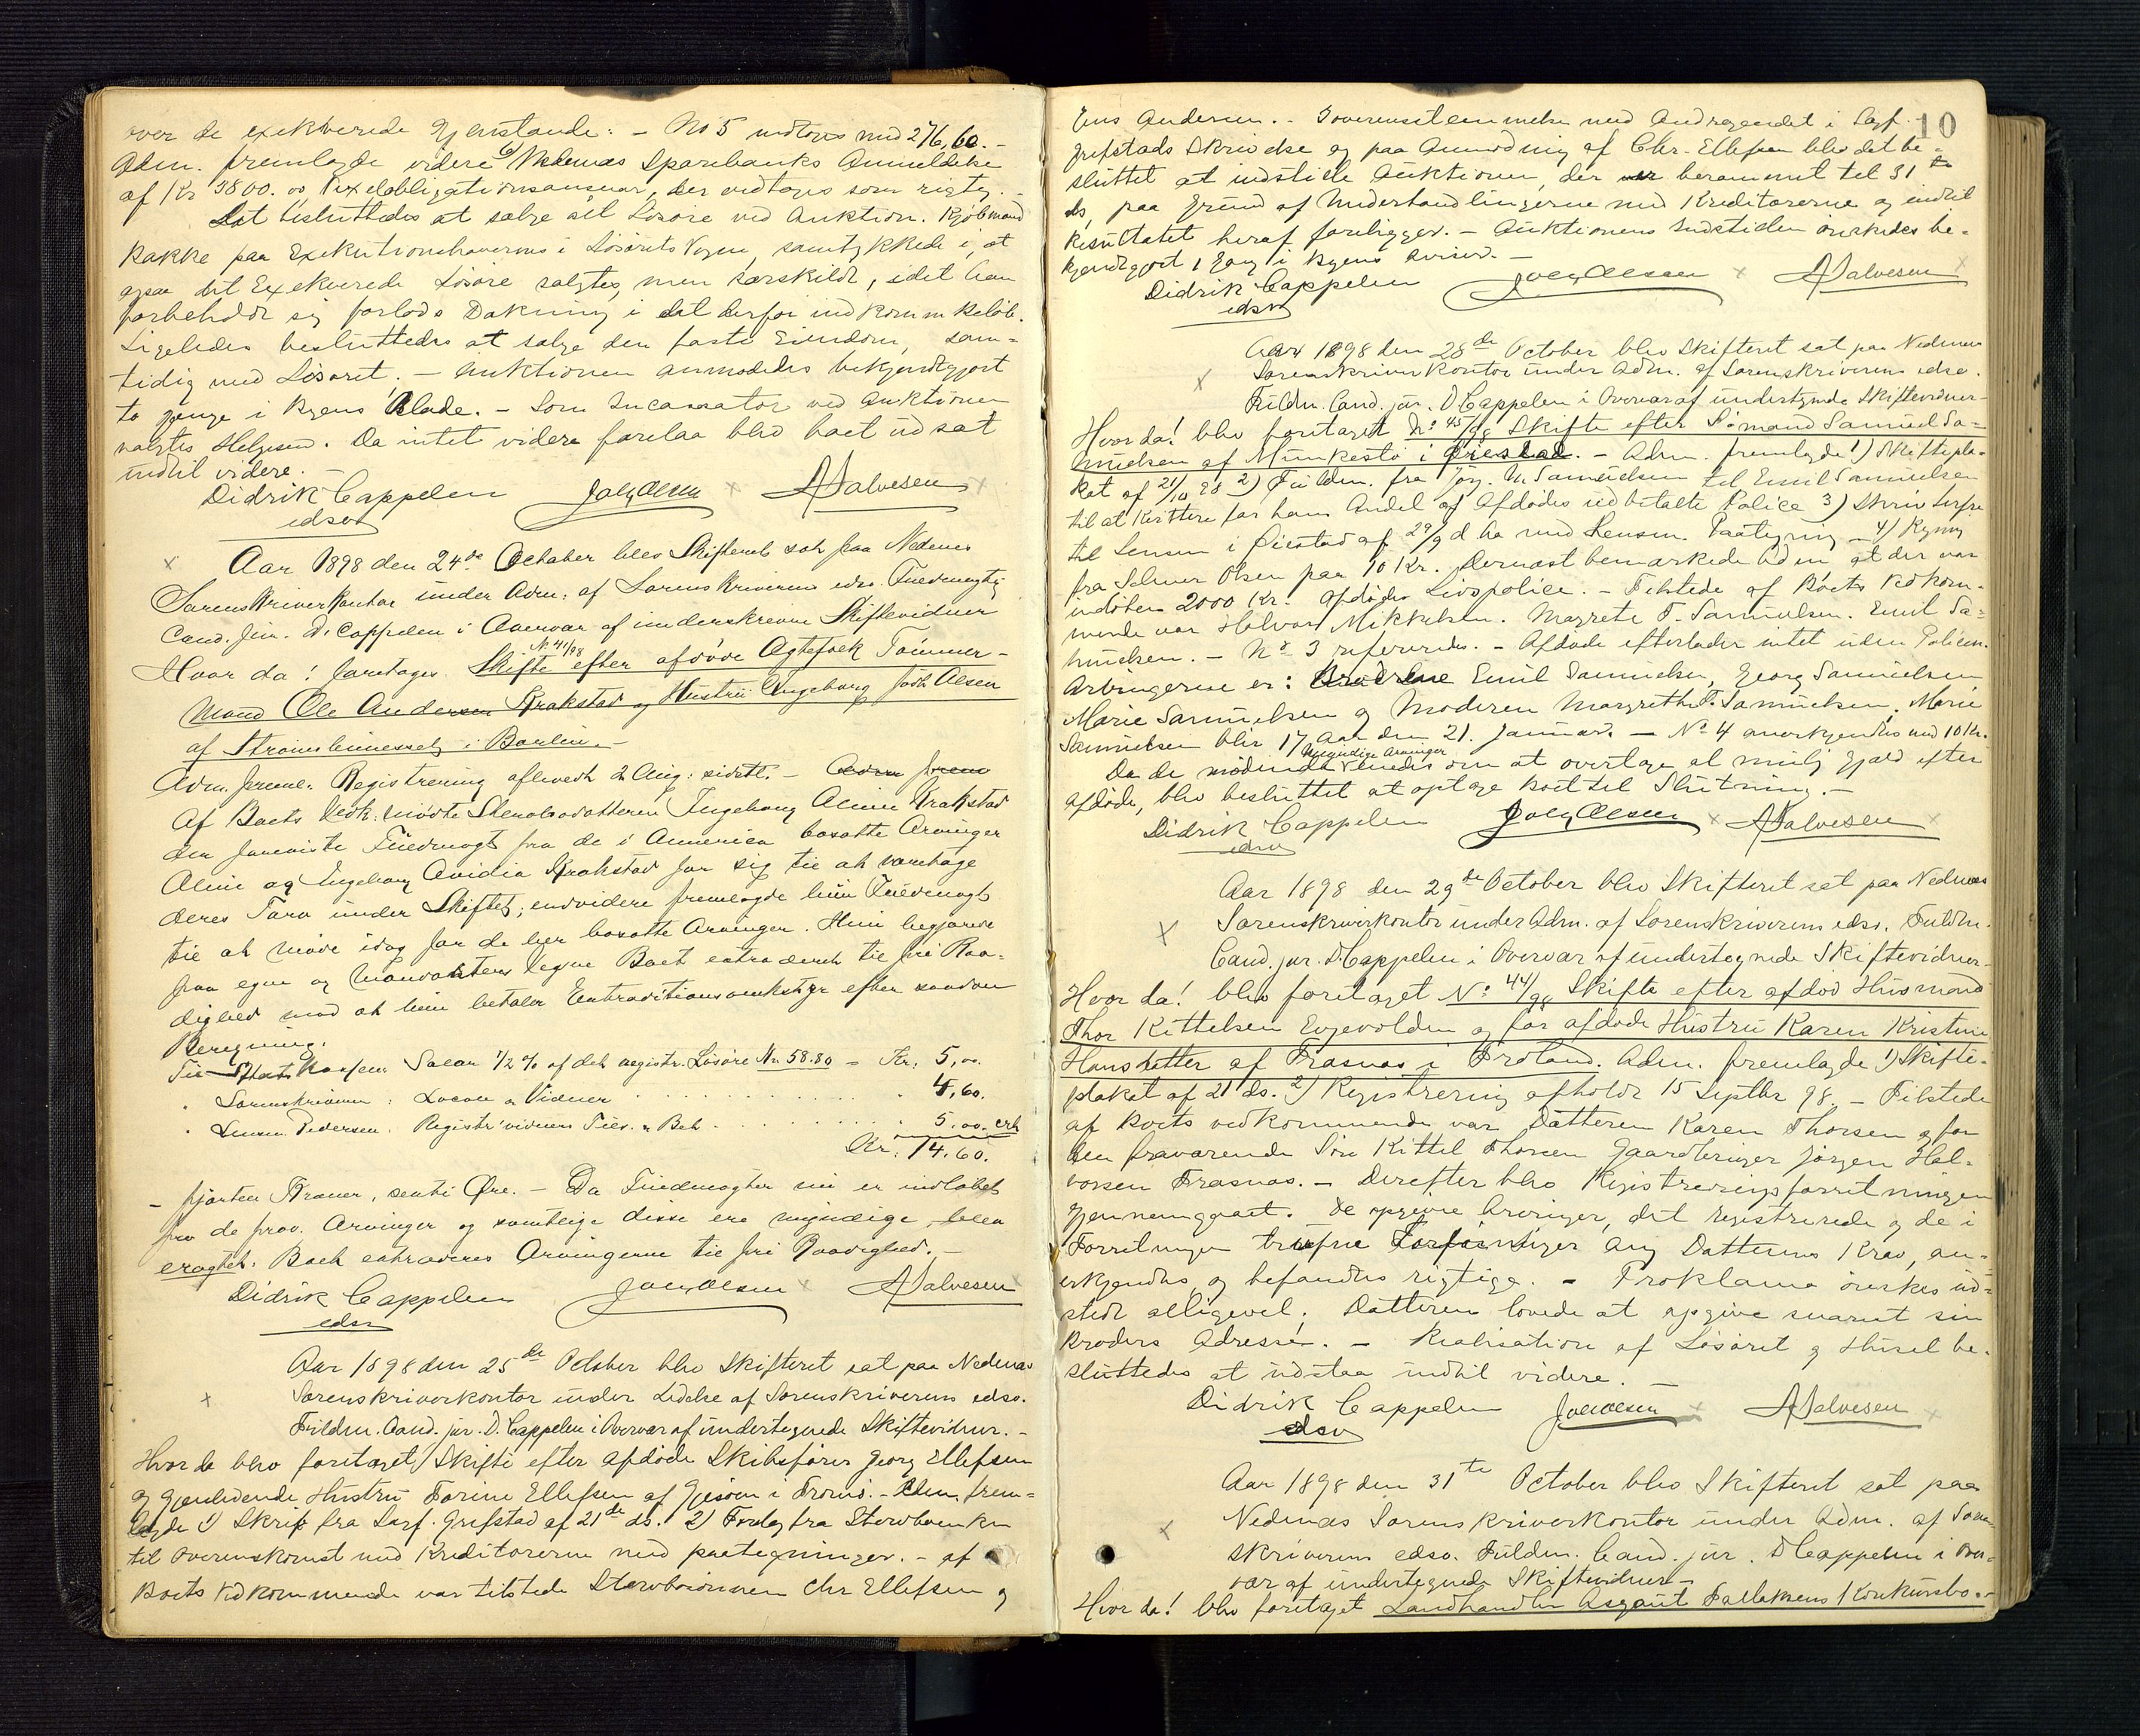 over de exekverede Gjenstande: - No 5 modtoges med 276,60. -
Adm. fremlagde videre 6) Nedenæs Sparebanks Anmeldelse
af Kr 3800.00 Vexelobligationsansvar, der vedtoges som rigtig. -
Det besluttedes at sælge alt Løsøre ved Auktion. Kjøbmand
Bakke paa Exekutionshavernes i Løsørets Vegne, samtykkede i, at
ogsaa det Exekverede Løsøre solgtes, men særskildt, idet han
forbeholdt sig forlods Dækning i det derfor indkomm Beløb.
Ligeledes besluttedes at sælge den faste Eiendom, sam-
tidig med Løsøret. - Auktionen anmodedes bekjendtgjort
to gange i Byens Blade. - Som Incassator ved Auktionen
valgtes Helgesen. Da intet videre forelaa blev boet udsat
indtil videre. -
Didrik Cappelen Joh Olsen A Salvesen
edsv
Aar 1898 den 24de October blev Skifteret sat paa Nedenes
Sorenskriverkontor under Adm: af Sorenskriverens edsv. Fuldmægtig
Cand. jur. D. Cappelen i Overvær af underskrevne Skiftevidner
Hvor da! foretages No 41/98 Skifte efter afdøde Ægtefolk Tømmer-
mand Ole Andersen Krakstad og Hustru Ingeborg født Olsen
af Strømsbunesset i Barbu. -
Adm. freml. Registrering aflevedt 2 Aug: sidstl. - Adm frem
Af Boets Vedk. mødte Stervbodatteren Ingeborg Aline Krakstad
der foreviste Fuldmagt fra de i Amerika bosatte Arvinger
Aline og Ingeborg Ovidia Krakstad for sig til at varetage
deres Tarv under Skiftet; endvidere fremlagde hun Fuldmagt
til at møde idag for de her bosatte Arvinger. Hun begjærede
paa egne og Mandanters Vegne Boet extraderet til fri Raa-
dighed mod at hun betaler Extraditionsomkstgr efter saadan
Beregning.
Til Statskassen Salær 1/2 % af det registr. Løsøre Kr. 58.80 = Kr. 5,00.
" Sorenskriveren: Loven a Vidner . . . . . . 4,60.
" Lensm. Pedersen. Registr' vidners Tilv. a Bet . . . . . . 5,00. erh
Kr. 14.60.
- fjorten Kroner, senti Øre. - Da Fuldmagter nu er indløbet
fra de frav. Arvinger og samtlige disse ere myndige, blev
eragtet: Boet extraderes Arvingerne til fri Raadighed. -
Didrik Cappelen Joh Olsen A Salvesen
edsv
Aar 1898 den 25de October blev Skifteret sat paa Nedenæs
Sorenskriverkontor under Ledelse af Sorenskriverens edsv.
Fuldm. Cand. jur. D. Cappelen i Overvær af undertegnede Skiftevidner. -
Hvor da blev foretaget Skifte efter afdøde Skibsfører Georg Ellefsen
og gjenlevende Hustru Torine Ellefsen af Gjesøen i Tromø. - Adm. frem-
lagde 1) Skriv fra Sagf. Grefstad af 21de ds. 2) Forslag fra Stervboenken
til Overenskomst med Kreditorerne med paategninger. - af
Boets Vedkommende var tilstede Stervboenken Chr Ellefsen og
10
Jens Andersen. - I overensstemmelse med Andragendet i Sagf.
Grefstads Skrivelse og paa Anmodning af Chr. Ellefsen blev det be-
sluttet at indstille Auktionen, der var berammet til 31te
ds, paa Grund af Underhandlingerne med Kreditorerne og indtil
Resultatet heraf foreligger. - Auktionens Indstillen ønskedes be-
kjendtgjort 1 Gang i Byens Aviser. -
Didrik Cappelen Joh Olsen A Salvesen
edsv
Aar 1898 den 28de October blev Skifteret sat paa Nedenæs
Sorenskriverkontor under Adm. af Sorenskriverens edsv.
Fuldm. Cand. jur. D. Cappelen i Overvær af undertegnede Skiftevidner -
Hvor da! blev foretaget No 45/98 Skifte efter Sømand Samuel Sa-
muelsen af Munkestø i Øiestad. - Adm. fremlagde 1) Skiftepla-
kat af 21/10 98 2) Fuldm. fra Jørg. M. Samuelsen til Emil Samuelsen
til at kvittere for hans Andel af Afdødes udbetalte Police 3) Skriv herfra
til Lensm i Øiestad af 29/9 d ha med Lensm. Paategning - 4) Regning
fra Selmer Olsen paa 10 Kr. Dernæst bemærkede Adm at der var
indløben 2000 Kr. Afdødes Livspolice. - Tilstede af Boets Vedkom-
mende var Halvor Mikkelsen. Margrete T. Samuelsen. Emil Sa-
muelsen. - No 3 refereredes. - Afdøde efterlader intet uden Policen.
Arvingerne er: Brødrene Emil Samuelsen, Georg Samuelsen,
Marie Samuelsen og Moderen Margrethe T. Samuelsen. Marie
Samuelsen blir 17 Aar den 21. Januar. - No 4 anerkjendtes med 10 Kr.
Da de mødende myndige Arvinger enedes om at overtage al mulig Gjæld efter
afdøde, blev besluttet at optage boet til Slutning. -
Didrik Cappelen Joh Olsen A Salvesen
edsv
Aar 1898 den 29de October blev Skifteret sat paa Nedenæs
Sorenskriverkontor under Adm. af Sorenskriverens edsv. Fuldm.
Cand. jur. D. Cappelen i Overvær af undertegnede Skiftevidner -
Hvor da! blev foretaget No 44/98 Skifte efter afdød Husmand
Thor Kittelsen Evjevolden og før afdøde Hustru Karen Kristine
Hansdatter af Frasnæs i Froland. Adm. fremlagde 1) Skifte-
plakat af 21 ds. 2) Registrering afholdt 15 Septbr 98. - Tilstede
af boets vedkommende var Datteren Karen Thorsen og for
den fraværende Søn Kittel Thorsen Gaardbruger Jørgen Hal-
vorsen Frasnæs. - Derefter blev Registreringsforretningen
gjennemgaaet. De opgivne Arvinger, det registrerede og de i
Forretningen trufne Forføininger ang Datterens Krav, an-
erkjendtes og befandtes rigtige. - Proklama ønskes ud-
stedt alligevel; Datteren lovede at opgive snarest sin
Broders Adresse. - Realisation af Løsøret og Huset be-
sluttedes at udstaa indtil videre. -
Didrik Cappelen Joh Olsen A Salvesen
edsv
Aar 1898 den 31te October blev Skifteret sat paa
Nedenæs Sorenskriverkontor under Adm. af Soren-
skriverens edsv. Fuldm. Cand. jur. D Cappelen i Over-
vær af undertegnede Skiftevidner -
Hvor da! blev foretaget Landhandler Asgaut Tallaksens Konkursbo. -